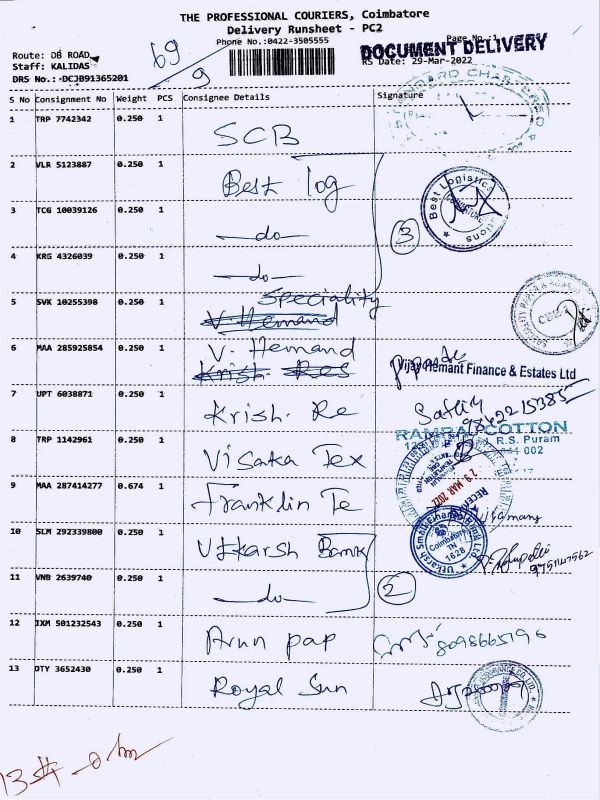 THE PROFESSIONAL COURIERS, Coimbatore
Delivery Runsheet - PC2
Phone No.:0422-3505555
Page No.:1
DOCUMENT DELIVERY
Route: DB ROAD
Staff: KALIDAS
DRS No.: DCJB91365201
RS Date: 29-Mar-2022
69
9
S No Consignment No Weight PCS Consignee Details Signature
1 TRP 7742342 0.250 1 SCB
2 VLR 5123887 0.250 1 Best log
3 TCG 10039126 0.250 1 do
3
4 KRG 4326039 0.250 1 do
5 SVK 10255398 0.250 1 Speciality
V. Hemand
6 MAA 285925854 0.250 1 V. Hemand
Krish. Res
Vijay Hemant Finance & Estates Ltd
7 UPT 6038871 0.250 1 Krish. Re
9842215385
RAMBAL COTTON
R.S. Puram
8 TRP 1142961 0.250 1 Visaka Tex
641 002
29 MAR 2022
9 MAA 287414277 0.674 1 Franklin Te
10 SLM 292339800 0.250 1 Utkarsh Bank
Utkarsh Small Finance Bank Ltd.
Coimbatore
TN
1628
9751147562
11 VNB 2639740 0.250 1 do
2
12 IXM 501232543 0.250 1 Arun pap
8098665796
13 OTY 3652430 0.250 1 Royal Sun
13